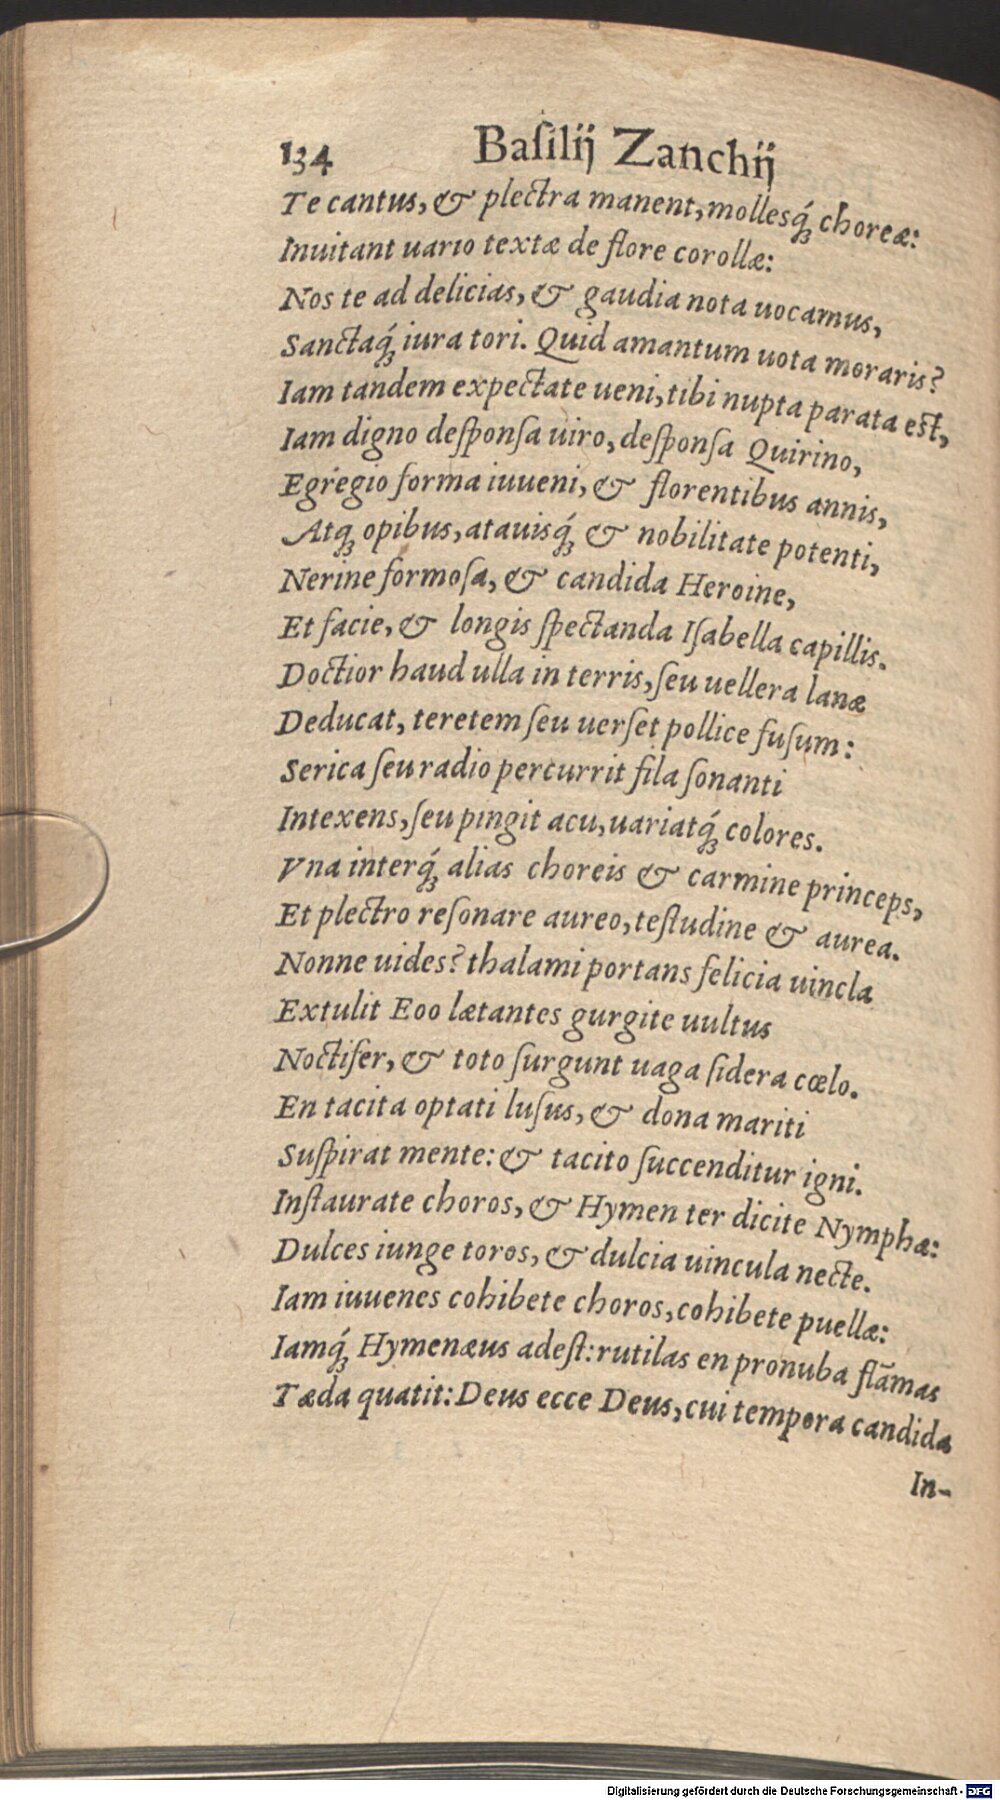 134 Baſilij Zanchij
Te cantus, & plectra manent, mollesq́; choreæ:
Inuitant uario textæ de flore corollæ:
Nos te ad delicias, & gaudia nota uocamus,
Sanctaq́; iura tori. Quid amantum uota moraris?
Iam tandem expectate ueni, tibi nupta parata est,
Iam digno deſponſa uiro, deſponſa Quirino,
Egregio forma iuueni, & florentibus annis,
Atq; opibus, atauisq́; & nobilitate potenti,
Nerine formoſa, & candida Heroine,
Et facie, & longis ſpectanda Iſabella capillis.
Doctior haud ulla in terris, ſeu uellera lanæ
Deducat, teretem ſeu uerſet pollice fuſum:
Serica ſeu radio percurrit fila ſonanti
Intexens, ſeu pingit acu, uariatq́; colores.
Vna interq́; alias choreis & carmine princeps,
Et plectro reſonare aureo, teſtudine & aurea.
Nonne uides? thalami portans felicia uincla
Extulit Eoo lætantes gurgite uultus
Noctifer, & toto ſurgunt uaga ſidera cœlo.
En tacita optati luſus, & dona mariti
Suſpirat mente: & tacito ſuccenditur igni.
Inſtaurate choros, & Hymen ter dicite Nymphæ:
Dulces iunge toros, & dulcia uincula necte.
Iam iuuenes cohibete choros, cohibete puellæ:
Iamq́; Hymenæus adeſt: rutilas en pronuba flāmas
Tæda quatit: Deus ecce Deus, cui tempora candida
In-
Digitalisierung gefördert durch die Deutsche Forschungsgemeinschaft - DFG